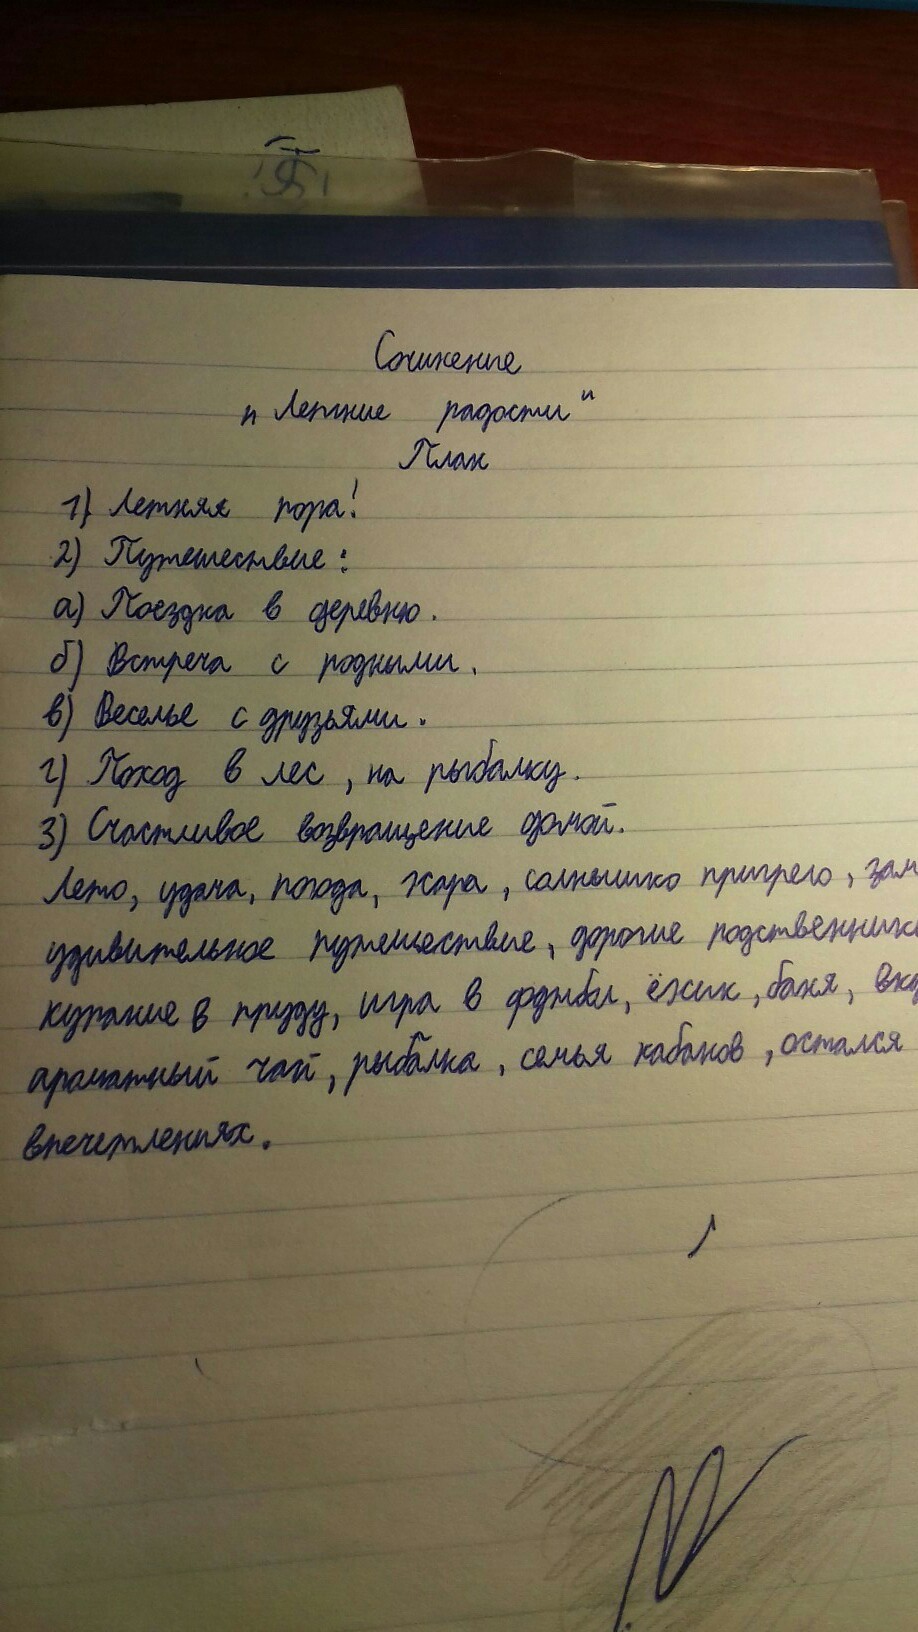 Сочинение
„Летние радости"
План
1) Летняя пора!
2) Путешествие:
а) Поездка в деревню.
б) Встреча с родными.
в) Веселье с друзьями.
г) Поход в лес, на рыбалку.
3) Счастливое возвращение домой.
Лето, удача, погода, жара, солнышко пригрело,
удивительное путешествие, дорогие родственники
купание в пруду, игра в футбол, ёжик, баня,
ароматный чай, рыбалка, семья кабанов, остался
впечетлениях.